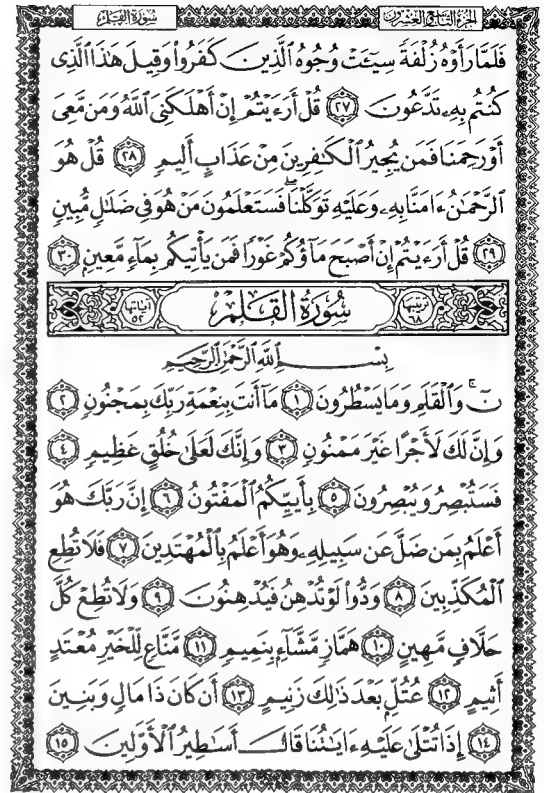 سُورَةُ القَلَمِ
الجُزءُ التَّاسِع وَالعِشْرُونَ
فَلَمَّا رَأَوْهُ زُلْفَةً سِيٓـَٔتْ وُجُوهُ ٱلَّذِينَ كَفَرُوا۟ وَقِيلَ هَٰذَا ٱلَّذِى
كُنتُم بِهِۦ تَدَّعُونَ ٢٧ قُلْ أَرَءَيْتُمْ إِنْ أَهْلَكَنِىَ ٱللَّهُ وَمَن مَّعِىَ
أَوْ رَحِمَنَا فَمَن يُجِيرُ ٱلْكَٰفِرِينَ مِنْ عَذَابٍ أَلِيمٍ ٢٨ قُلْ هُوَ
ٱلرَّحْمَٰنُ ءَامَنَّا بِهِۦ وَعَلَيْهِ تَوَكَّلْنَا ۖ فَسَتَعْلَمُونَ مَنْ هُوَ فِى ضَلَٰلٍ مُّبِينٍ
٢٩ قُلْ أَرَءَيْتُمْ إِنْ أَصْبَحَ مَآؤُكُمْ غَوْرًا فَمَن يَأْتِيكُم بِمَآءٍ مَّعِينٍۭ ٣٠
ترتيبها ٦٨ سُورَةُ القَلَمِ آياتها ٥٢
بِسْمِ ٱللَّهِ ٱلرَّحْمَٰنِ ٱلرَّحِيمِ
نٓ ۚ وَٱلْقَلَمِ وَمَا يَسْطُرُونَ ١ مَآ أَنتَ بِنِعْمَةِ رَبِّكَ بِمَجْنُونٍ ٢
وَإِنَّ لَكَ لَأَجْرًا غَيْرَ مَمْنُونٍ ٣ وَإِنَّكَ لَعَلَىٰ خُلُقٍ عَظِيمٍ ٤
فَسَتُبْصِرُ وَيُبْصِرُونَ ٥ بِأَييِّكُمُ ٱلْمَفْتُونُ ٦ إِنَّ رَبَّكَ هُوَ
أَعْلَمُ بِمَن ضَلَّ عَن سَبِيلِهِۦ وَهُوَ أَعْلَمُ بِٱلْمُهْتَدِينَ ٧ فَلَا تُطِعِ
ٱلْمُكَذِّبِينَ ٨ وَدُّوا۟ لَوْ تُدْهِنُ فَيُدْهِنُونَ ٩ وَلَا تُطِعْ كُلَّ
حَلَّافٍ مَّهِينٍ ١٠ هَمَّازٍ مَّشَّآءٍۭ بِنَمِيمٍ ١١ مَّنَّاعٍ لِّلْخَيْرِ مُعْتَدٍ
أَثِيمٍ ١٢ عُتُلٍّۭ بَعْدَ ذَٰلِكَ زَنِيمٍ ١٣ أَن كَانَ ذَا مَالٍ وَبَنِينَ
١٤ إِذَا تُتْلَىٰ عَلَيْهِ ءَايَٰتُنَا قَالَ أَسَٰطِيرُ ٱلْأَوَّلِينَ ١٥